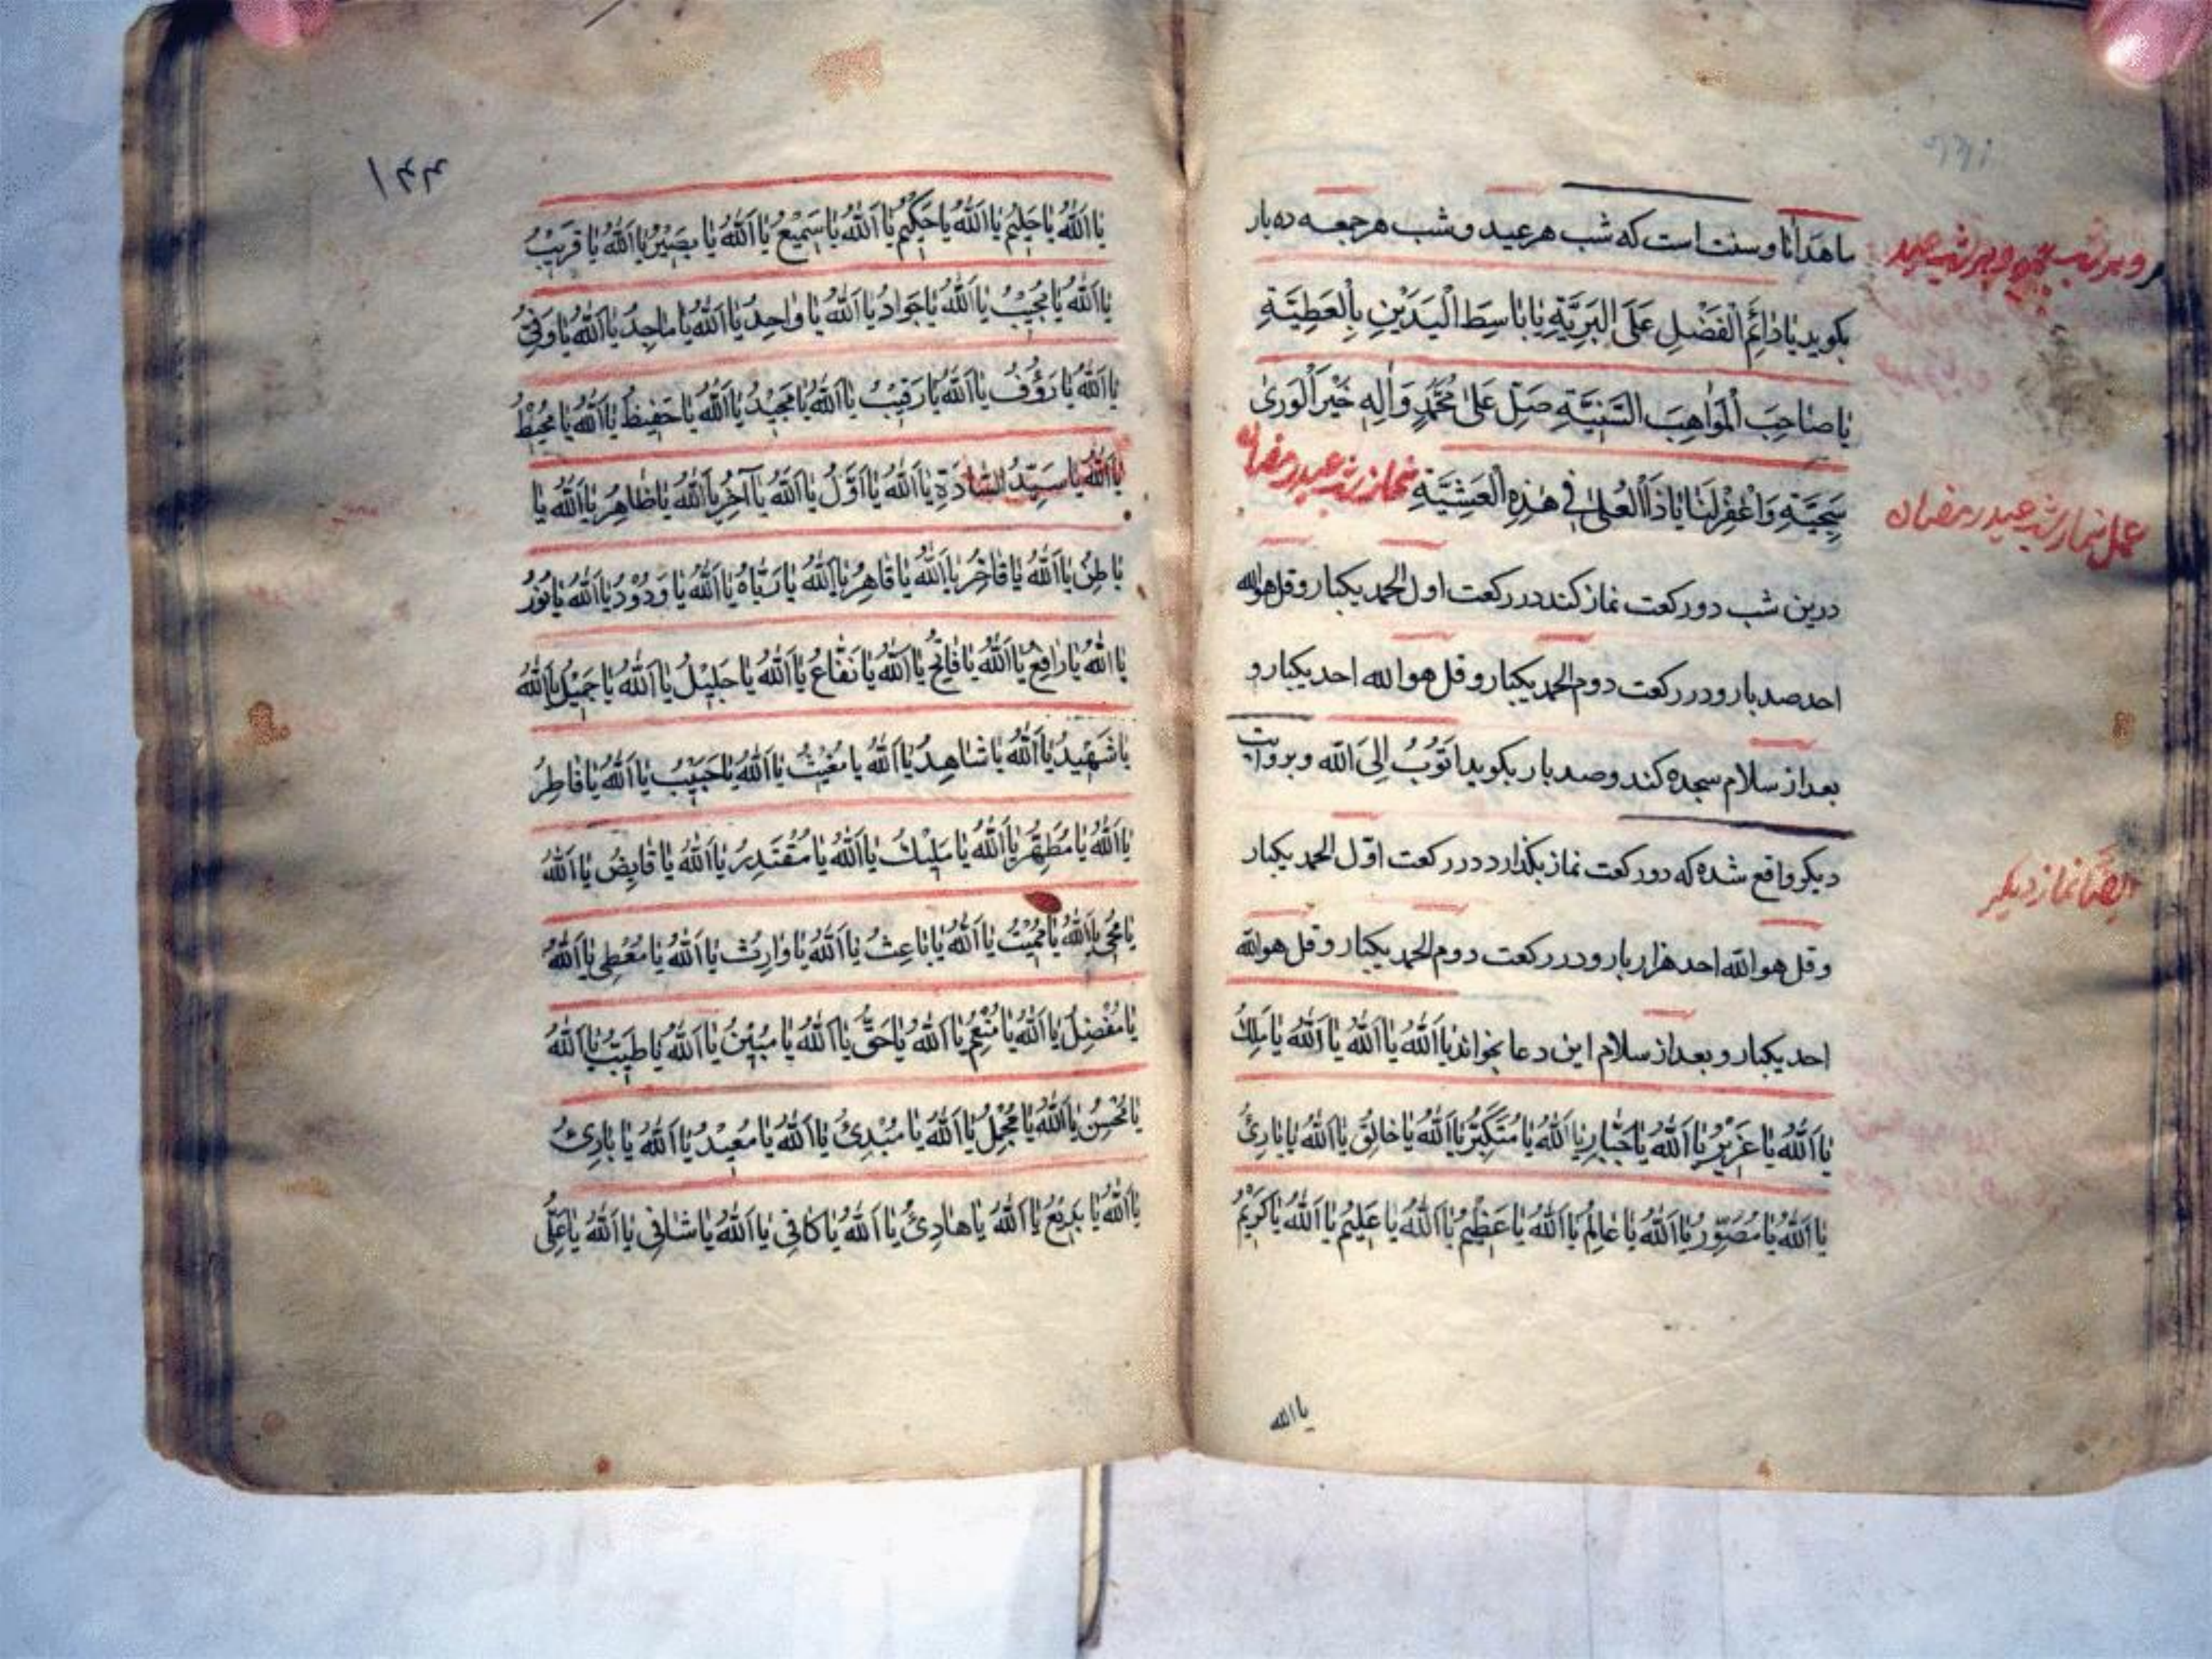 ما هدانا و سنت است که شب هر عید و شب هر جمعه ده بار
و هر شب جمعه و هر شب عید
بکوید یٰا دٰائِمَ الْفَضْلِ عَلَی الْبَرِیَّةِ یٰا بٰاسِطَ الْیَدَیْنِ بِالْعَطِیَّةِ
یٰا صٰاحِبَ الْمَوٰاهِبِ السَّنِیَّةِ صَلِّ عَلیٰ مُحَمَّدٍ وَ اٰلِهِ خَیْرِ الْوَریٰ
سَجِیَّةِ وَ اغْفِرْ لَنٰا یٰا ذَا الْعُلیٰ فی هٰذِهِ الْعَشِیَّةِ نماز شب عید رمضان
عمل نماز شب عید رمضان
درین شب دو رکعت نماز کند در رکعت اول الحمد یکبار و قل هو الله
احد صد بار و در رکعت دوم الحمد یکبار و قل هو الله احد یکبار و
بعد از سلام سجده کند و صد بار بکوید اَتُوبُ اِلَی اللّٰه و بروایت
دیکر واقع شده که دو رکعت نماز بکذارد در رکعت اوّل الحمد یکبار
ایضا نماز دیکر
و قل هو الله احد هزار بار و در رکعت دوم الحمد یکبار و قل هو الله
احد یکبار و بعد از سلام این دعا بخواند یٰا اَللّٰهُ یٰا اَللّٰهُ یٰا اَللّٰهُ یٰا مَلِكُ
یٰا اَللّٰهُ یٰا عَزِیْزُ یٰا اَللّٰهُ یٰا جَبّٰارُ یٰا اَللّٰهُ یٰا مُتَکَبِّرُ یٰا اَللّٰهُ یٰا خٰالِقُ یٰا اَللّٰهُ یٰا بٰارِئُ
یٰا اَللّٰهُ یٰا مُصَوِّرُ یٰا اَللّٰهُ یٰا عٰالِمُ یٰا اَللّٰهُ یٰا عَظِیْمُ یٰا اَللّٰهُ یٰا عَلِیْمُ یٰا اَللّٰهُ یٰا کَرِیْمُ
یا الله
۱۴۴
یٰا اَللّٰهُ یٰا حَلِیْمُ یٰا اَللّٰهُ یٰا حَکِیْمُ یٰا اَللّٰهُ یٰا سَمِیْعُ یٰا اَللّٰهُ یٰا بَصِیْرُ یٰا اَللّٰهُ یٰا قَرِیْبُ
یٰا اَللّٰهُ یٰا مُجِیْبُ یٰا اَللّٰهُ یٰا جَوٰادُ یٰا اَللّٰهُ یٰا وٰاحِدُ یٰا اَللّٰهُ یٰا مٰاجِدُ یٰا اَللّٰهُ یٰا وَفِیُّ
یٰا اَللّٰهُ یٰا رَؤُفُ یٰا اَللّٰهُ یٰا رَقِیْبُ یٰا اَللّٰهُ یٰا مَجِیْدُ یٰا اَللّٰهُ یٰا حَفِیْظُ یٰا اَللّٰهُ یٰا مُحِیْطُ
یٰا اَللّٰهُ یٰا سَیِّدَ السّٰادَةِ یٰا اَللّٰهُ یٰا اَوَّلُ یٰا اَللّٰهُ یٰا آخِرُ یٰا اَللّٰهُ یٰا ظٰاهِرُ یٰا اَللّٰهُ یٰا
بٰاطِنُ یٰا اَللّٰهُ یٰا فٰاخِرُ یٰا اَللّٰهُ یٰا قٰاهِرُ یٰا اَللّٰهُ یٰا رَبّٰاهُ یٰا اَللّٰهُ یٰا وَدُوْدُ یٰا اَللّٰهُ یٰا نُوْرُ
یٰا اَللّٰهُ یٰا رٰافِعُ یٰا اَللّٰهُ یٰا فٰاتِحُ یٰا اَللّٰهُ یٰا نَفّٰاعُ یٰا اَللّٰهُ یٰا جَلِیْلُ یٰا اَللّٰهُ یٰا جَمِیْلُ یٰا اَللّٰهُ
یٰا شَهِیْدُ یٰا اَللّٰهُ یٰا شٰاهِدُ یٰا اَللّٰهُ یٰا مُغِیْثُ یٰا اَللّٰهُ یٰا حَبِیْبُ یٰا اَللّٰهُ یٰا فٰاطِرُ
یٰا اَللّٰهُ یٰا مُطَهِّرُ یٰا اَللّٰهُ یٰا مَلِیْكُ یٰا اَللّٰهُ یٰا مُقْتَدِرُ یٰا اَللّٰهُ یٰا قٰابِضُ یٰا اَللّٰهُ
یٰا مُحْیِی یٰا اَللّٰهُ یٰا مُمِیْتُ یٰا اَللّٰهُ یٰا بٰاعِثُ یٰا اَللّٰهُ یٰا وٰارِثُ یٰا اَللّٰهُ یٰا مُعْطِی یٰا اَللّٰهُ
یٰا مُفْضِلُ یٰا اَللّٰهُ یٰا مُنْعِمُ یٰا اَللّٰهُ یٰا حَقُّ یٰا اَللّٰهُ یٰا مُبِیْنُ یٰا اَللّٰهُ یٰا طَیِّبُ یٰا اَللّٰهُ
یٰا مُحْسِنُ یٰا اَللّٰهُ یٰا مُجْمِلُ یٰا اَللّٰهُ یٰا مُبْدِئُ یٰا اَللّٰهُ یٰا مُعِیْدُ یٰا اَللّٰهُ یٰا بٰارِئُ
یٰا اَللّٰهُ یٰا بَدِیْعُ یٰا اَللّٰهُ یٰا هٰادِیُ یٰا اَللّٰهُ یٰا کٰافِی یٰا اَللّٰهُ یٰا شٰافِی یٰا اَللّٰهُ یٰا عَلِیُّ